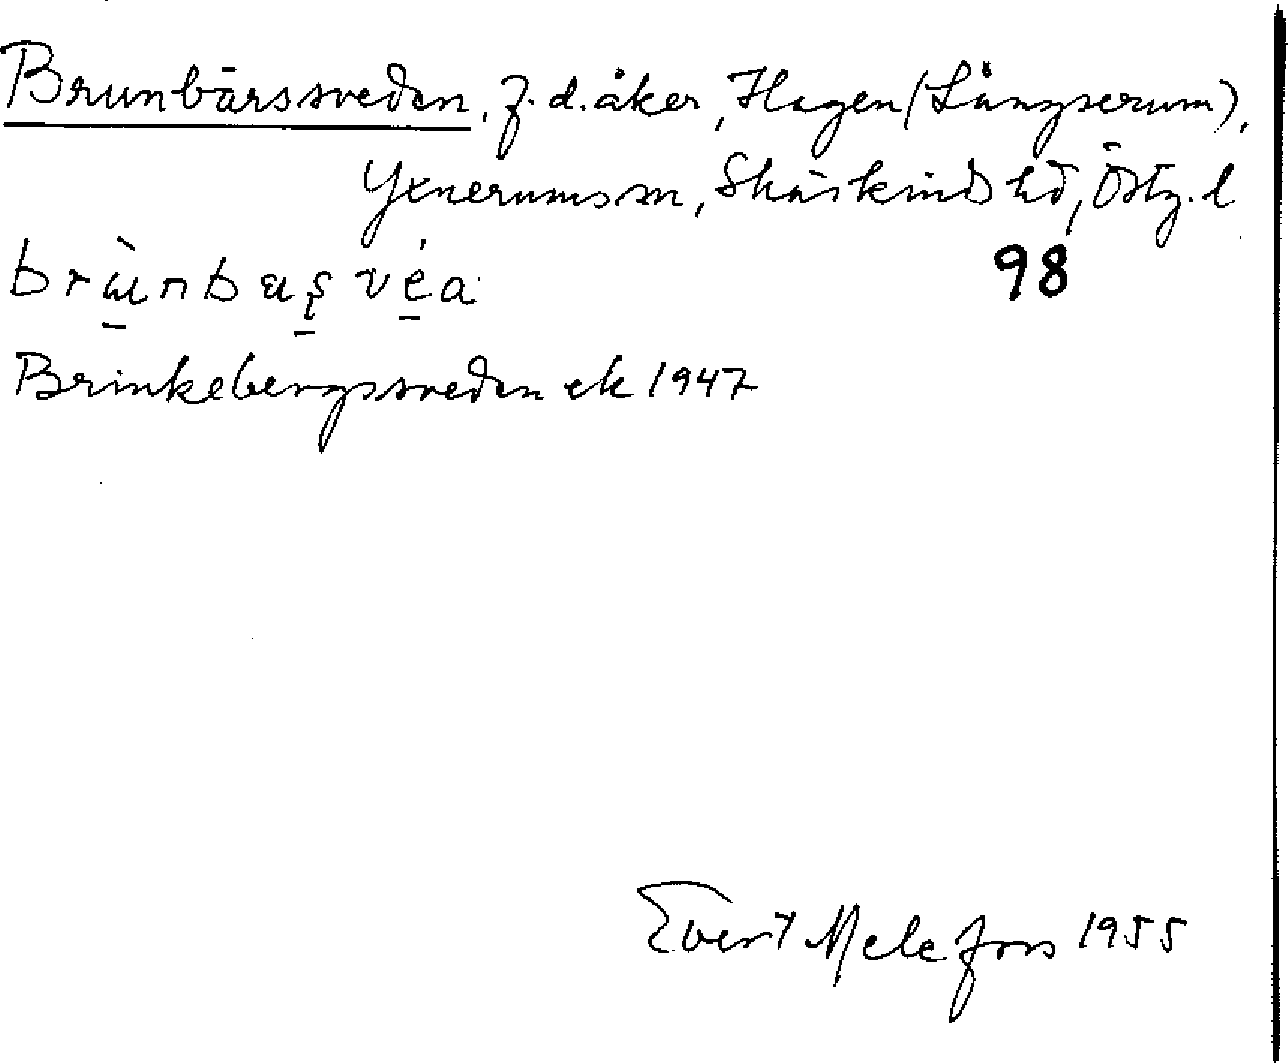 Brunbärssveden, f.d. åker, Hagen (Långserum),
Yxnerums sn, Skärkinds hd, Östg. l
98
brùnbaşvéa
Brinkebergssveden ek 1947
Evert Melefors 1955